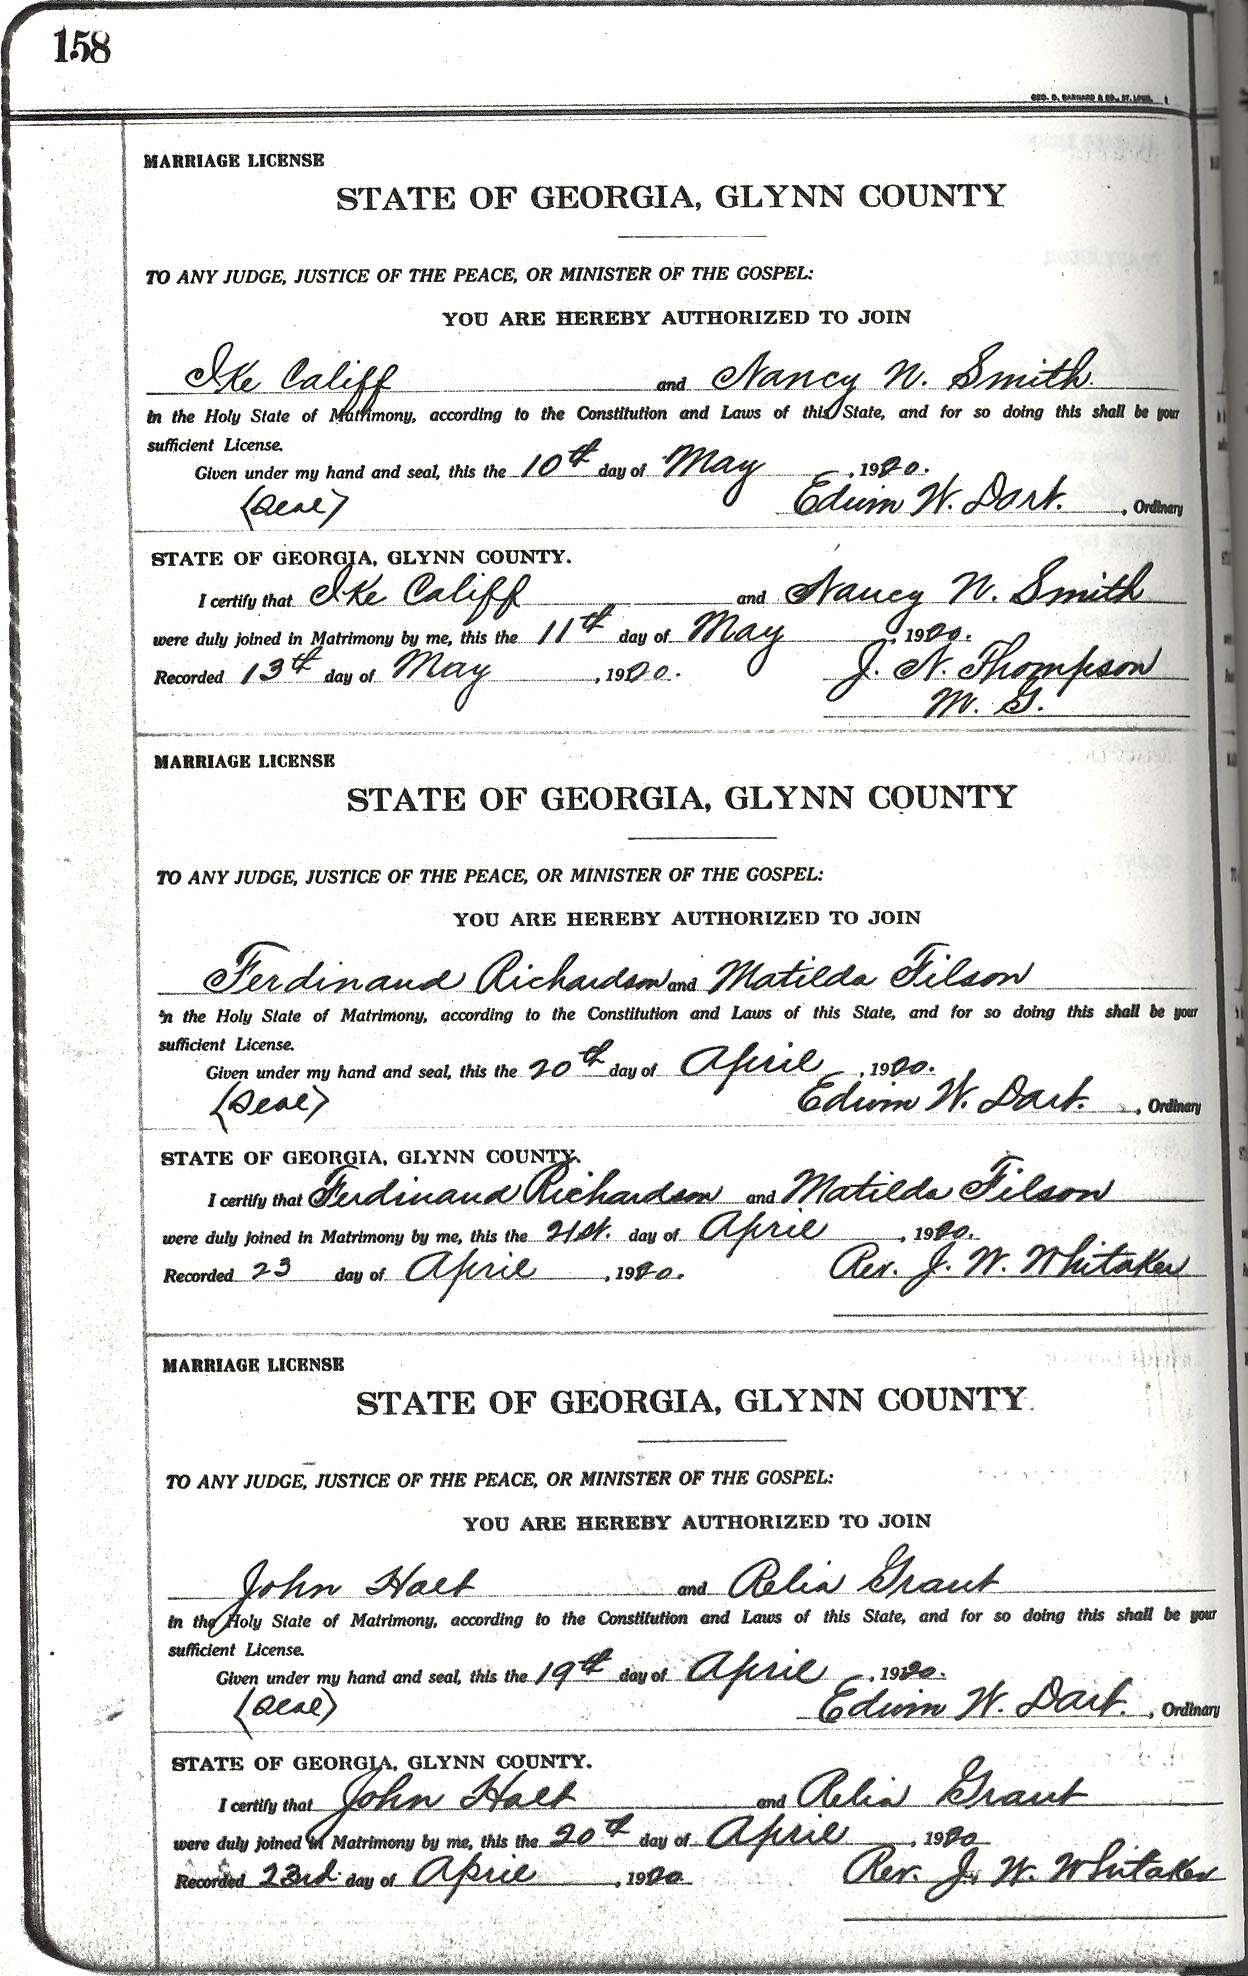 158
GEO. D. BARNARD & CO., ST. LOUIS.
MARRIAGE LICENSE
STATE OF GEORGIA, GLYNN COUNTY
TO ANY JUDGE, JUSTICE OF THE PEACE, OR MINISTER OF THE GOSPEL:
YOU ARE HEREBY AUTHORIZED TO JOIN
Ike Califf and Nancy N. Smith
in the Holy State of Matrimony, according to the Constitution and Laws of this State, and for so doing this shall be your
sufficient License.
Given under my hand and seal, this the 10th day of May, 1920.
(Seal) Edwin W. Dart., Ordinary
STATE OF GEORGIA, GLYNN COUNTY.
I certify that Ike Califf and Nancy N. Smith
were duly joined in Matrimony by me, this the 11th day of May, 1920.
Recorded 13th day of May, 1920. J. N. Thompson
M. G.
MARRIAGE LICENSE
STATE OF GEORGIA, GLYNN COUNTY
TO ANY JUDGE, JUSTICE OF THE PEACE, OR MINISTER OF THE GOSPEL:
YOU ARE HEREBY AUTHORIZED TO JOIN
Ferdinand Richardson and Matilda Filson
in the Holy State of Matrimony, according to the Constitution and Laws of this State, and for so doing this shall be your
sufficient License.
Given under my hand and seal, this the 20th day of April, 1920.
(Seal) Edwin W. Dart., Ordinary
STATE OF GEORGIA, GLYNN COUNTY.
I certify that Ferdinand Richardson and Matilda Filson
were duly joined in Matrimony by me, this the 21st. day of April, 1920.
Recorded 23 day of April, 1920. Rev. J. W. Whitaker
MARRIAGE LICENSE
STATE OF GEORGIA, GLYNN COUNTY.
TO ANY JUDGE, JUSTICE OF THE PEACE, OR MINISTER OF THE GOSPEL:
YOU ARE HEREBY AUTHORIZED TO JOIN
John Holt and Relia Grant
in the Holy State of Matrimony, according to the Constitution and Laws of this State, and for so doing this shall be your
sufficient License.
Given under my hand and seal, this the 19th day of April, 1920.
(Seal) Edwin W. Dart., Ordinary
STATE OF GEORGIA, GLYNN COUNTY.
I certify that John Holt and Relia Grant
were duly joined in Matrimony by me, this the 20th day of April, 1920
Recorded 23rd. day of April, 1920 Rev. J. W. Whitaker